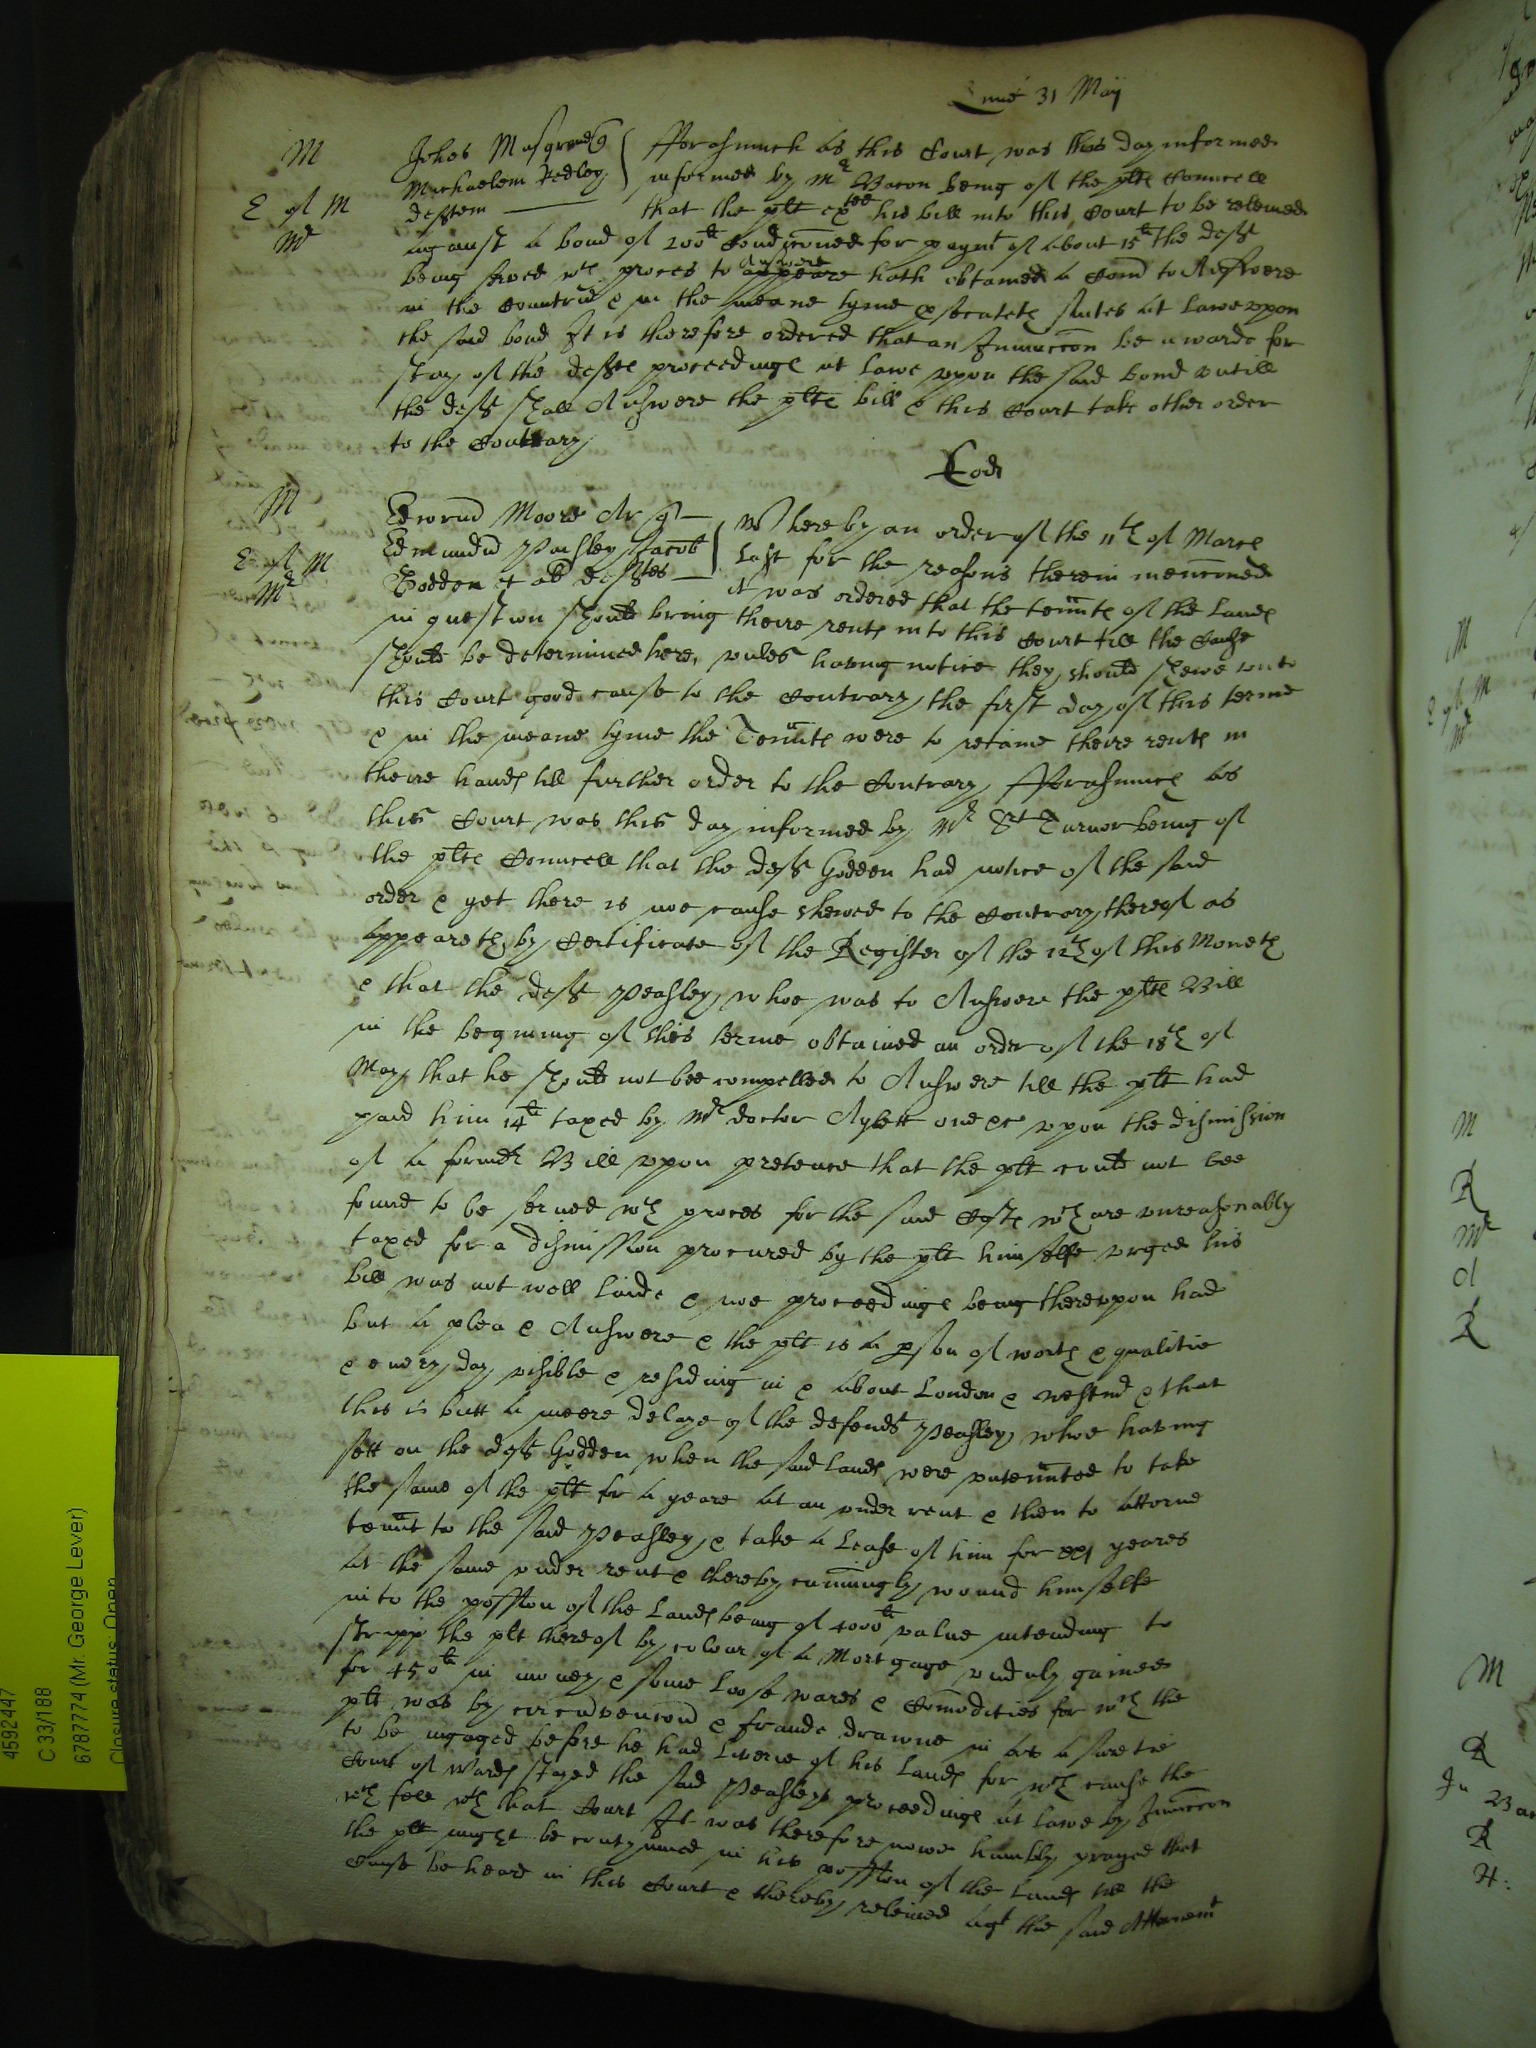 Lune 31 Maij
M
Johes Musgrave q
fforasmuch as this Court was this day informed
Michaelem Pedley
informed by Mr Bacon being of the plts Councell
E of M
defftem
that the plt exted his bill into this Court to be releived
Mr
against a bond of 200li Condiconed for paymt of about 15li the defft
being served wth proces to appeare Answere hath obtained a Comd to Answere
in the Countrie & in the meane tyme psecuteth suites at Lawe vpon
the said bond It is therefore ordered that an Iniunccon be awarded for
stay of the deffts proceedings at Lawe vpon the said bond vntill
the defft shall Answere the plts bill & this Court take other order
to the Contrary
Eod
M
Edwrud Moore Ar q
Whereby an order of the 11th of March
E of M
Edmundu Peasley Jacob
Last for the reasons therein menconed
Mr
Godden et al defftes
it was ordered that the tennts of the Lands
in question should bring theire rents into this Court till the Cause
should be determined here, vnles having notice they should shewe vnto
this Court good cause to the Contrary the first day of this terme
& in the meane tyme the Tennts were to retaine theire rents in
theire hands till further order to the Contrary fforasmuch as
this Court was this day informed by Mr Srt Turnor being of
the plts Councell that the defft Godden had notice of the said
order & yet there is noe cause shewed to the Contrary thereof as
appeareth by Certificate of the Register of the 12th of this Moneth
& that the defft Peasley whoe was to Answere the plts Bill
in the begining of this terme obtained an order of the 18th of
May that he should not bee compelled to Answere till the plt had
paid him 14li taxed by Mr doctor Aylett one &c vpon the dismission
of a former Bill vpon pretence that the plt could not bee
found to be served wth proces for the said Costs wch are vnreasonably
taxed for a dismission procured by the plt himselfe vrged his
bill was not well laide & noe proceedings being therevpon had
but a plea & Answere & the plt is a pson of worth & qualitie
& every day visible & residing in & about London & Westmd & that
this is butt a meere delaye of the defendt Peasley, whoe having
sett on the defft Godden when the said Lands were vntennted to take
the same of the plt for a yeare at an vnder rent & then to Attorne
tennt to the said Peasley & take a Lease of him for xxi yeares
at the same vnder rent & thereby cunningly wound himselfe
into the possion of the Lands being of 4000li value intending to
stripp the plt thereof by colour of a Mortgage vnduly gained
for 450li in money & some Loose wares & Comodities for wch the
plt was by circumvencon & fraude drawne in as a suretie
to be ingaged before he had Liverie of his Lands for wch cause the
Court of Wards stayed the said Peasleys proceedings at Lawe by Iniunccon
wch fell wth that Court It was therefore nowe humbly prayed that
the plt might be contynued in his possion of the Lands till the
cause be heard in this Court & thereby releived agt the said Attornemt
4592447
C 33/188
6787774 (Mr. George Lever)
Closure status: Open
M
M
Mr
M
R
Mr
A
R
M
R
R
H: